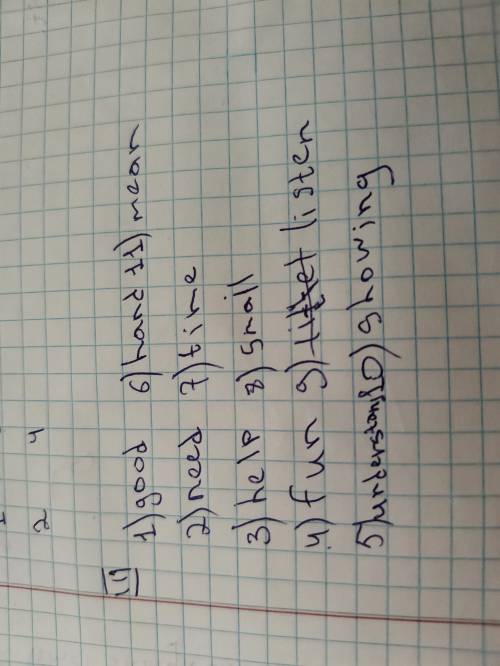 2 4
III
1) good 6) hand 11) mean
2) need 7) time
3) help 8) small
4) fun 9) listen
5) understand 10) showing